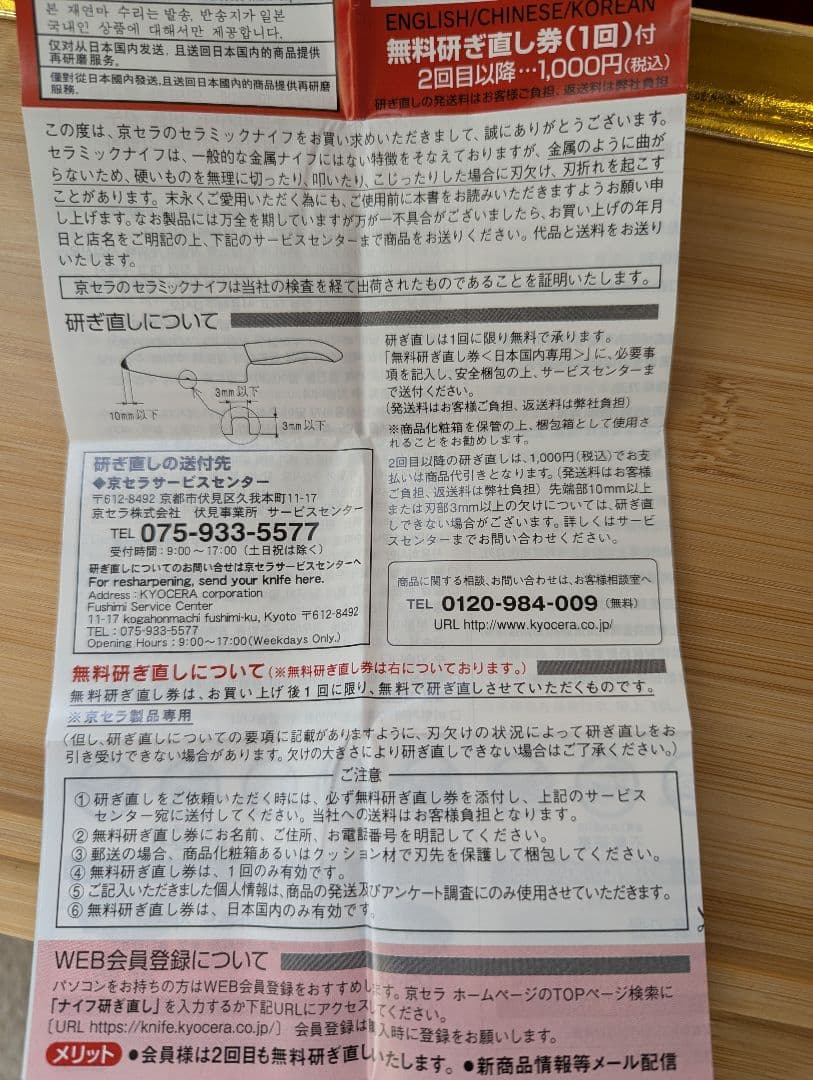 본 재연마 수리는 발송, 반송지가 일본
국내인 상품에 대해서만 제공합니다.
仅对从日本国内发送，且送回日本国内的商品提供
再研磨服务。
僅對從日本國內發送,且送回日本國內的商品提供再研磨
服務。
ENGLISH/CHINESE/KOREAN
無料研ぎ直し券(1回)付
2回目以降…1,000円(税込)
研ぎ直しの発送料はお客様ご負担、返送料は弊社負担
この度は、京セラのセラミックナイフをお買い求めいただきまして、誠にありがとうございます。
セラミックナイフは、一般的な金属ナイフにはない特徴をそなえておりますが、金属のように曲が
らないため、硬いものを無理に切ったり、叩いたり、こじったりした場合に刃欠け、刃折れを起こす
ことがあります。末永くご愛用いただく為にも、ご使用前に本書をお読みいただきますようお願い申
し上げます。なお製品には万全を期していますが万が一不具合がございましたら、お買い上げの年月
日と店名をご明記の上、下記のサービスセンターまで商品をお送りください。代品と送料をお送り
いたします。
京セラのセラミックナイフは当社の検査を経て出荷されたものであることを証明いたします。
研ぎ直しについて
3mm以下
10mm以下
3mm以下
研ぎ直しは1回に限り無料で承ります。
「無料研ぎ直し券<日本国内専用>」に、必要事
項を記入し、安全梱包の上、サービスセンターま
で送付ください。
(発送料はお客様ご負担、返送料は弊社負担)
※商品化粧箱を保管の上、梱包箱として使用さ
れることをお勧めします。
2回目以降の研ぎ直しは、1,000円(税込)でお支
払いは商品代引きとなります。(発送料はお客様
ご負担、返送料は弊社負担) 先端部10mm以上
または刃部3mm以上の欠けについては、研ぎ直
しできない場合がございます。詳しくはサービ
スセンターまでお問い合わせください。
研ぎ直しの送付先
◆京セラサービスセンター
〒612-8492 京都市伏見区久我本町11-17
京セラ株式会社 伏見事業所 サービスセンター
TEL 075-933-5577
受付時間：9:00～17:00 (土日祝は除く)
研ぎ直しについてのお問い合せは京セラサービスセンターへ
For resharpening, send your knife here.
Address : KYOCERA corporation
Fushimi Service Center
11-17 kogahonmachi fushimi-ku, Kyoto 〒612-8492
TEL : 075-933-5577
Opening Hours : 9:00~17:00(Weekdays Only.)
商品に関する相談、お問い合わせは、お客様相談室へ
TEL 0120-984-009 (無料)
URL http://www.kyocera.co.jp/
無料研ぎ直しについて(※無料研ぎ直し券は右についております。)
無料研ぎ直し券は、お買い上げ後1回に限り、無料で研ぎ直しさせていただくものです。
※京セラ製品専用
(但し、研ぎ直しについての要項に記載がありますように、刃欠けの状況によって研ぎ直しをお
引き受けできない場合があります。欠けの大きさにより研ぎ直しできない場合はご了承ください。)
ご注意
①研ぎ直しをご依頼いただく時には、必ず無料研ぎ直し券を添付し、上記のサービス
センター宛に送付してください。当社への送料はお客様負担となります。
②無料研ぎ直し券にお名前、ご住所、お電話番号を明記してください。
③郵送の場合、商品化粧箱あるいはクッション材で刃先を保護して梱包してください。
④無料研ぎ直し券は、1回のみ有効です。
⑤ご記入いただきました個人情報は、商品の発送及びアンケート調査にのみ使用させていただきます。
⑥無料研ぎ直し券は、日本国内のみ有効です。
WEB会員登録について
パソコンをお持ちの方はWEB会員登録をおすすめします。京セラ ホームページのTOPページ検索に
「ナイフ研ぎ直し」を入力するか下記URLにアクセスしてください。
〔URL https://knife.kyocera.co.jp/〕 会員登録は購入時に登録をお願いします。
メリット ●会員様は2回目も無料研ぎ直しいたします。●新商品情報等メール配信